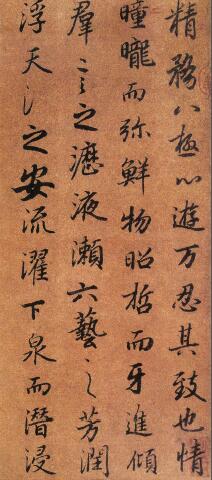 精務八極心遊万忍其致也情
曈曨而弥鮮物昭晢而牙進傾
羣言之瀝液漱六藝之芳潤
浮天淵之安流濯下泉而潛浸